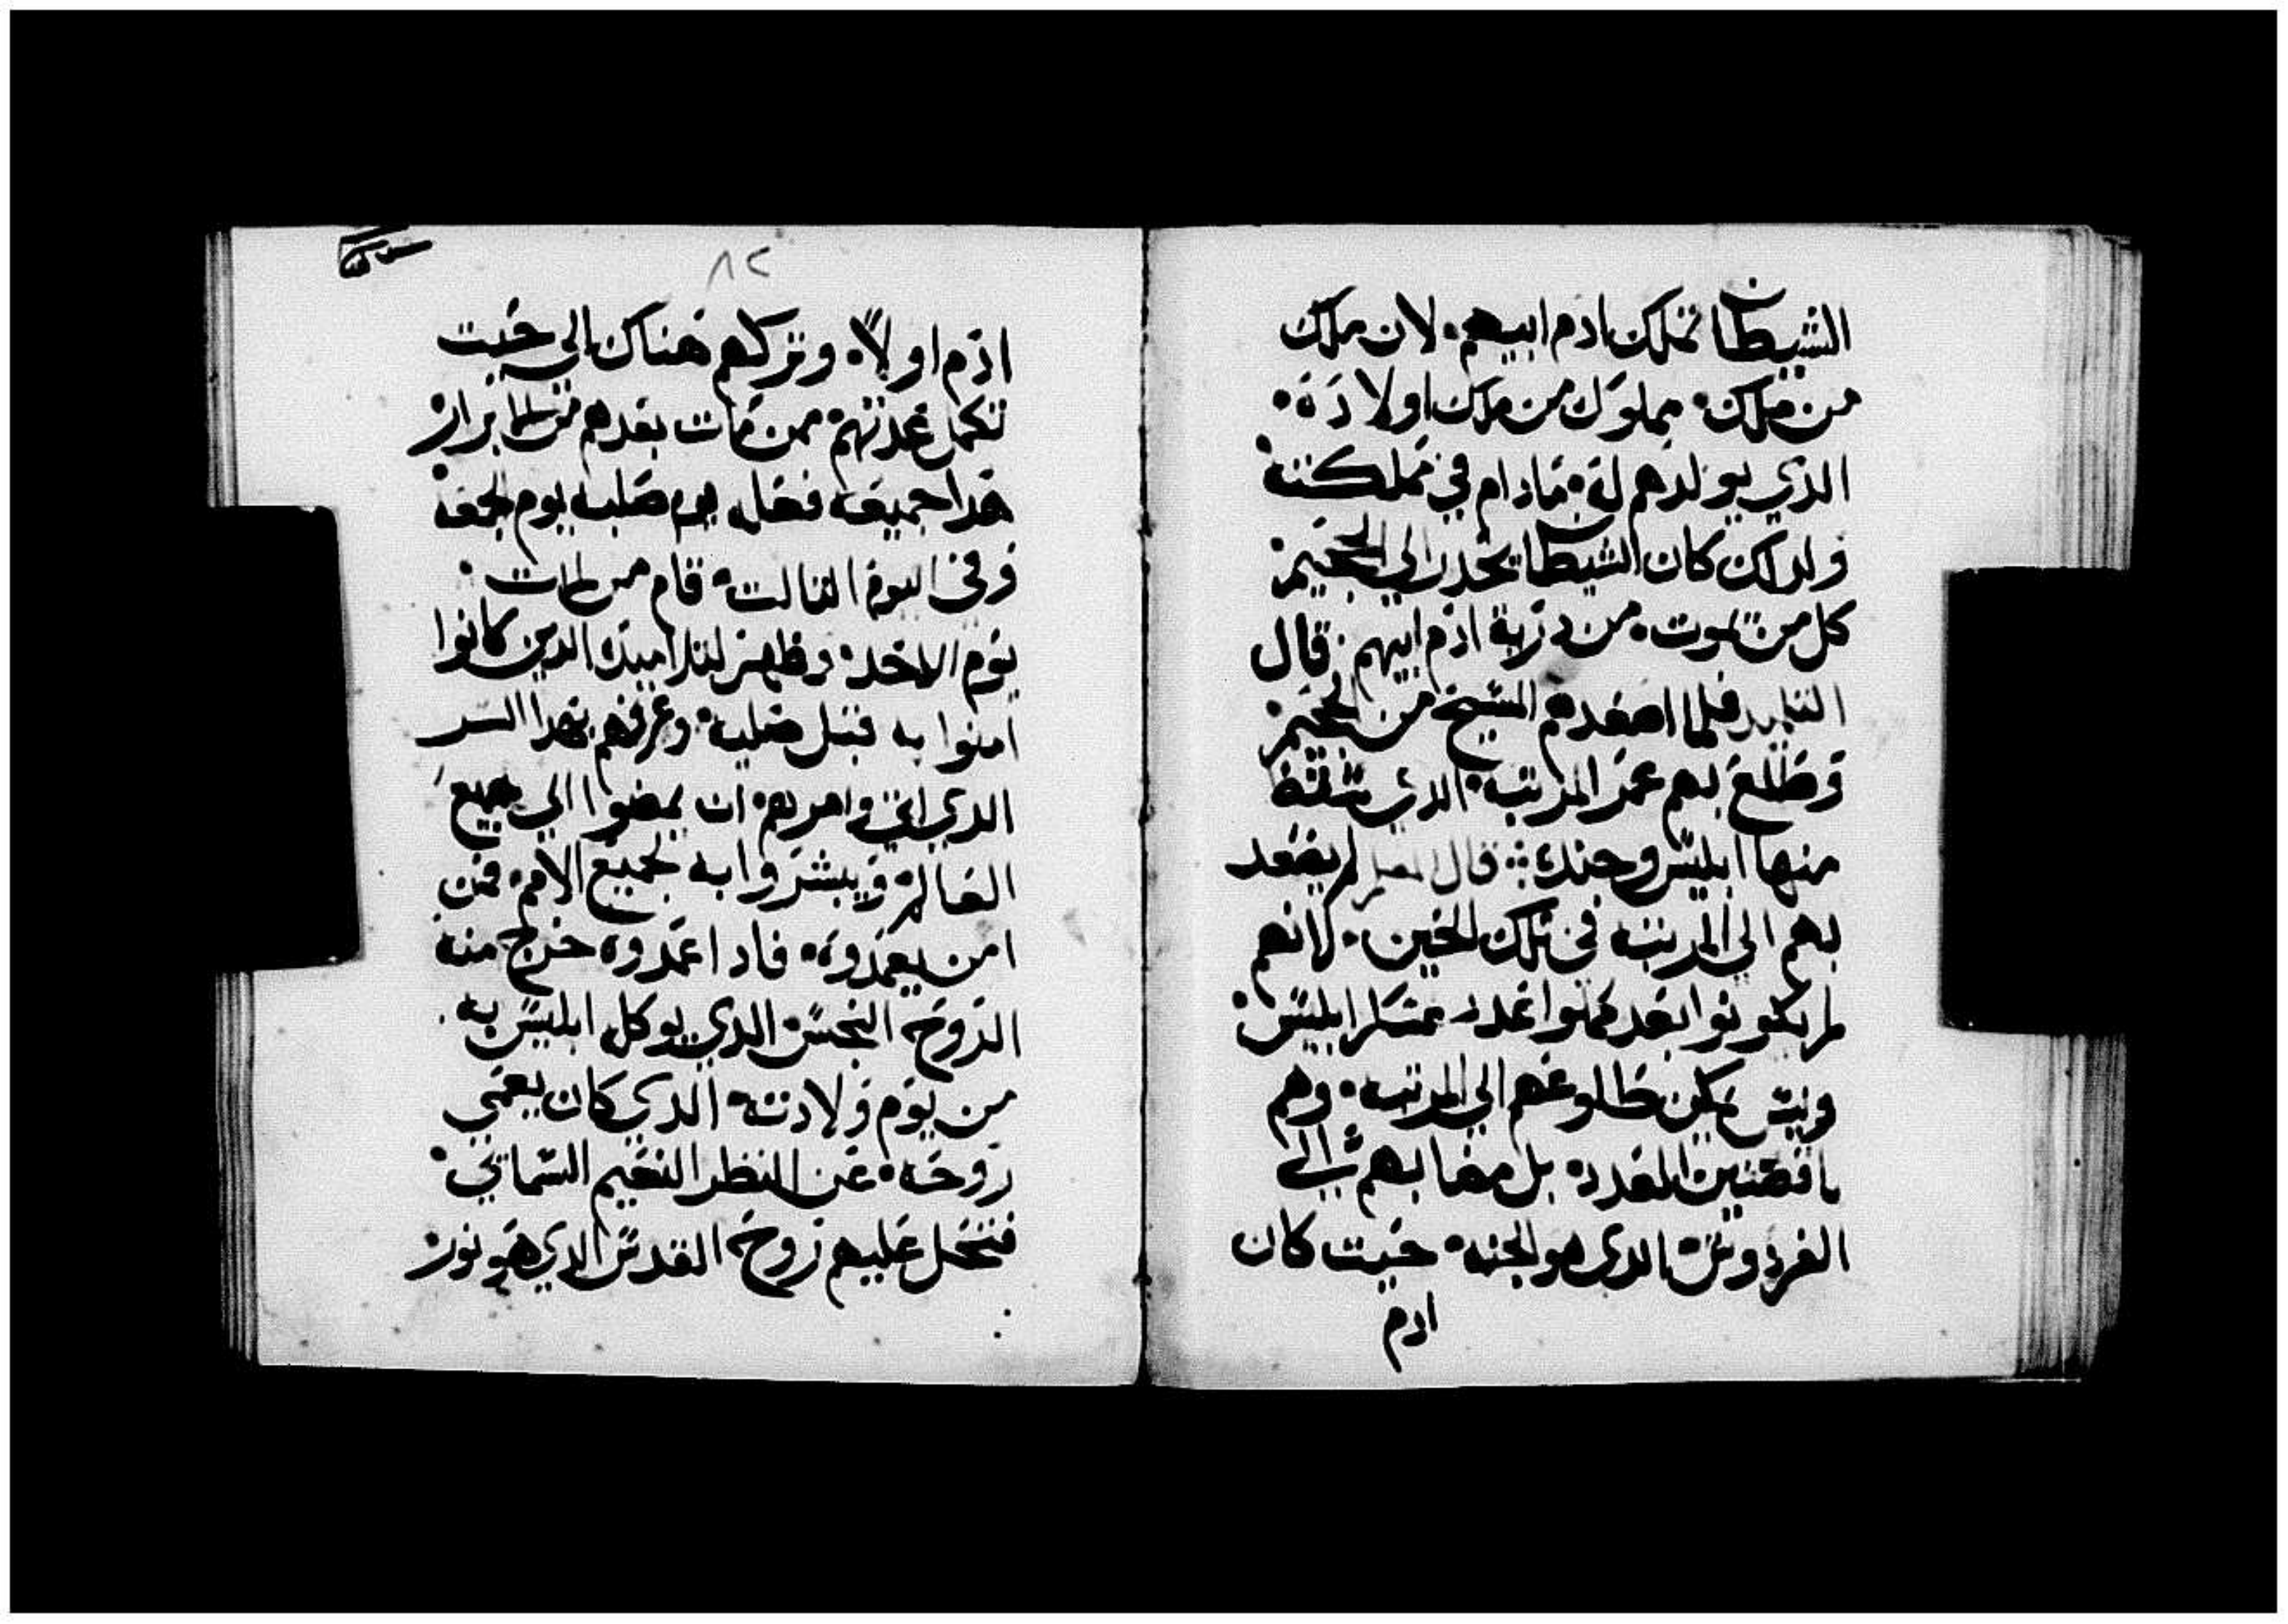 الشيطان تملك ادم ابيهم. لان ملك
من ملك. مملوك من ملك اولاده.
الذي يولدهم له. مادام في مملكته
ولدلك كان الشيطان يحدر الي الجحيم
كل من يموت. من درية ادم ابيهم. قال
التلميد فلما اصعدهم المسيح من الجحيم
وطلع بهم عمر المرتبه الدي سقط
منها ابليس وجنده ∴ قال المعلم لم يصعد
بهم الي المرتبه في تلك الحين. لانهم
لم يكونوا بعد كملوا عدد عسكر ابليس.
وليس يمكن طلوعهم الي المرتبه. وهم
ناقصين العدد. بل مضا بهم الي
الفردوس. الدي هو الجنه. حيت كان
ادم
٨٢
ادم اولاً. وتركهم هناك الي حيت
تكمل عدتهم. ممن مات بعدهم من الابرار
هدا جميعه فعله يوم صلبه يوم الجمعه
وفي اليوم التالت. قام من الاموات.
يوم الاحد. وظهر لتلاميده الدين كانوا
امنوا به قبل صلبه. وعرفهم بهدا السر
الدي اتي وامرهم. ان يمضوا الي جميع
العالم. ويبشروا به لجميع الامم. فمن
امن يعمدوه. فادا اعمدوه خرج منه
الروح النجس. الدي يوكل ابليس به.
من يوم ولادته. الدي كان يعمي
روحه. عن النظر النعيم السماني.
فتحل عليهم روح القدس الدي هو نور